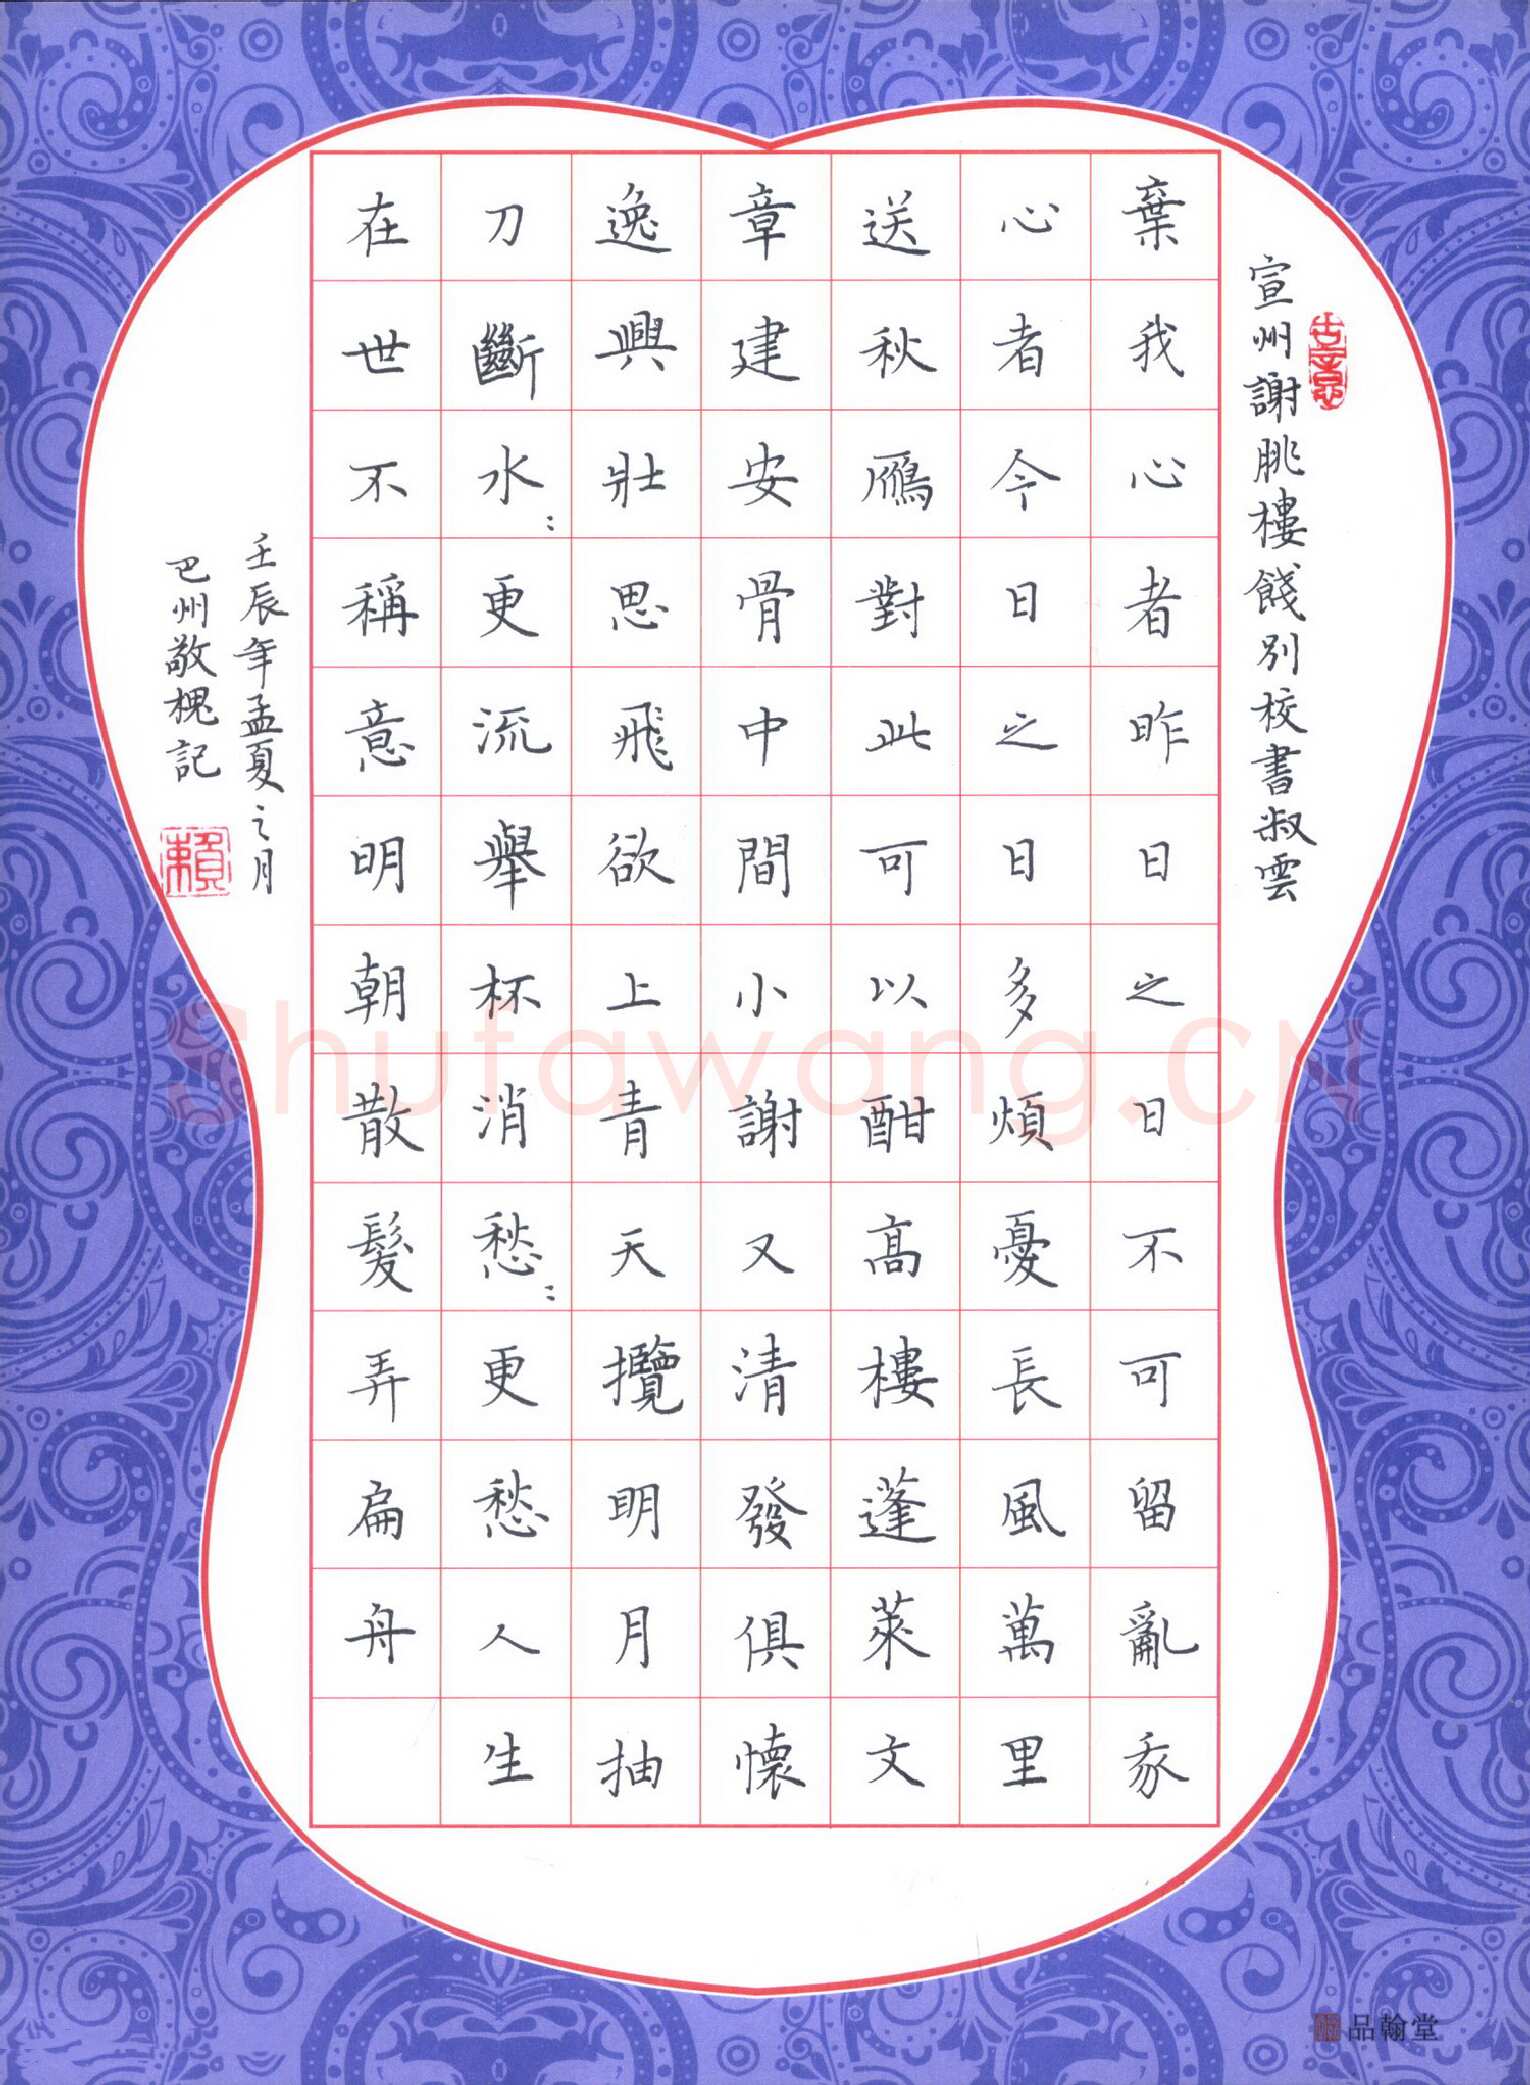 宣州謝朓樓餞別校書叔雲
棄我心者昨日之日不可留亂我
心者今日之日多煩憂長風萬里
送秋鴈對此可以酣高樓蓬萊文
章建安骨中間小謝又清發俱懷
逸興壯思飛欲上青天攬明月抽
刀斷水:更流舉杯消愁:更愁人生
在世不稱意明朝散髮弄扁舟
壬辰年孟夏之月
巴州敬槐記
賴
品翰堂
Shufawang.CN